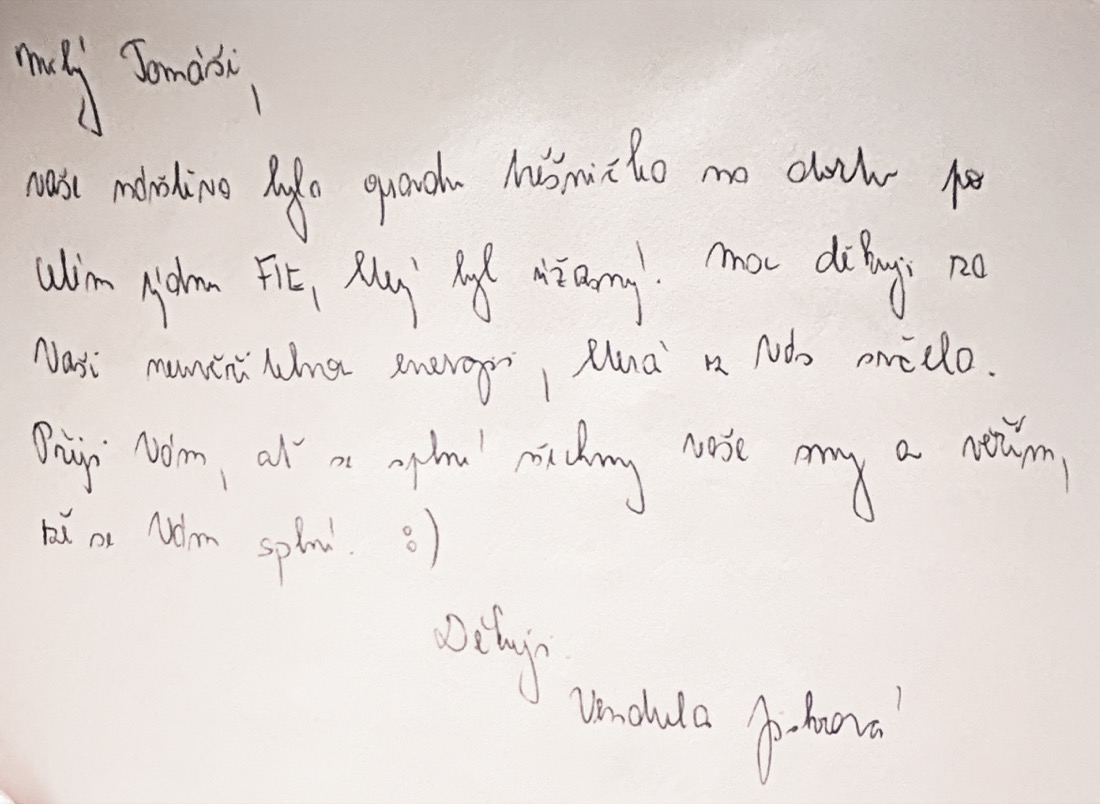 Milý Tomáši,
vaše návštěva byla opravdu třešnička na dortu po
celém týdnu FIT, který byl úžasný! Moc děkuji za
Vaši neuvěřitelnou energii, která z Vás srčela.
Přeji Vám, ať se splní všechny vaše sny a věřím,
že se Vám splní. :)
Děkuji
Vendula